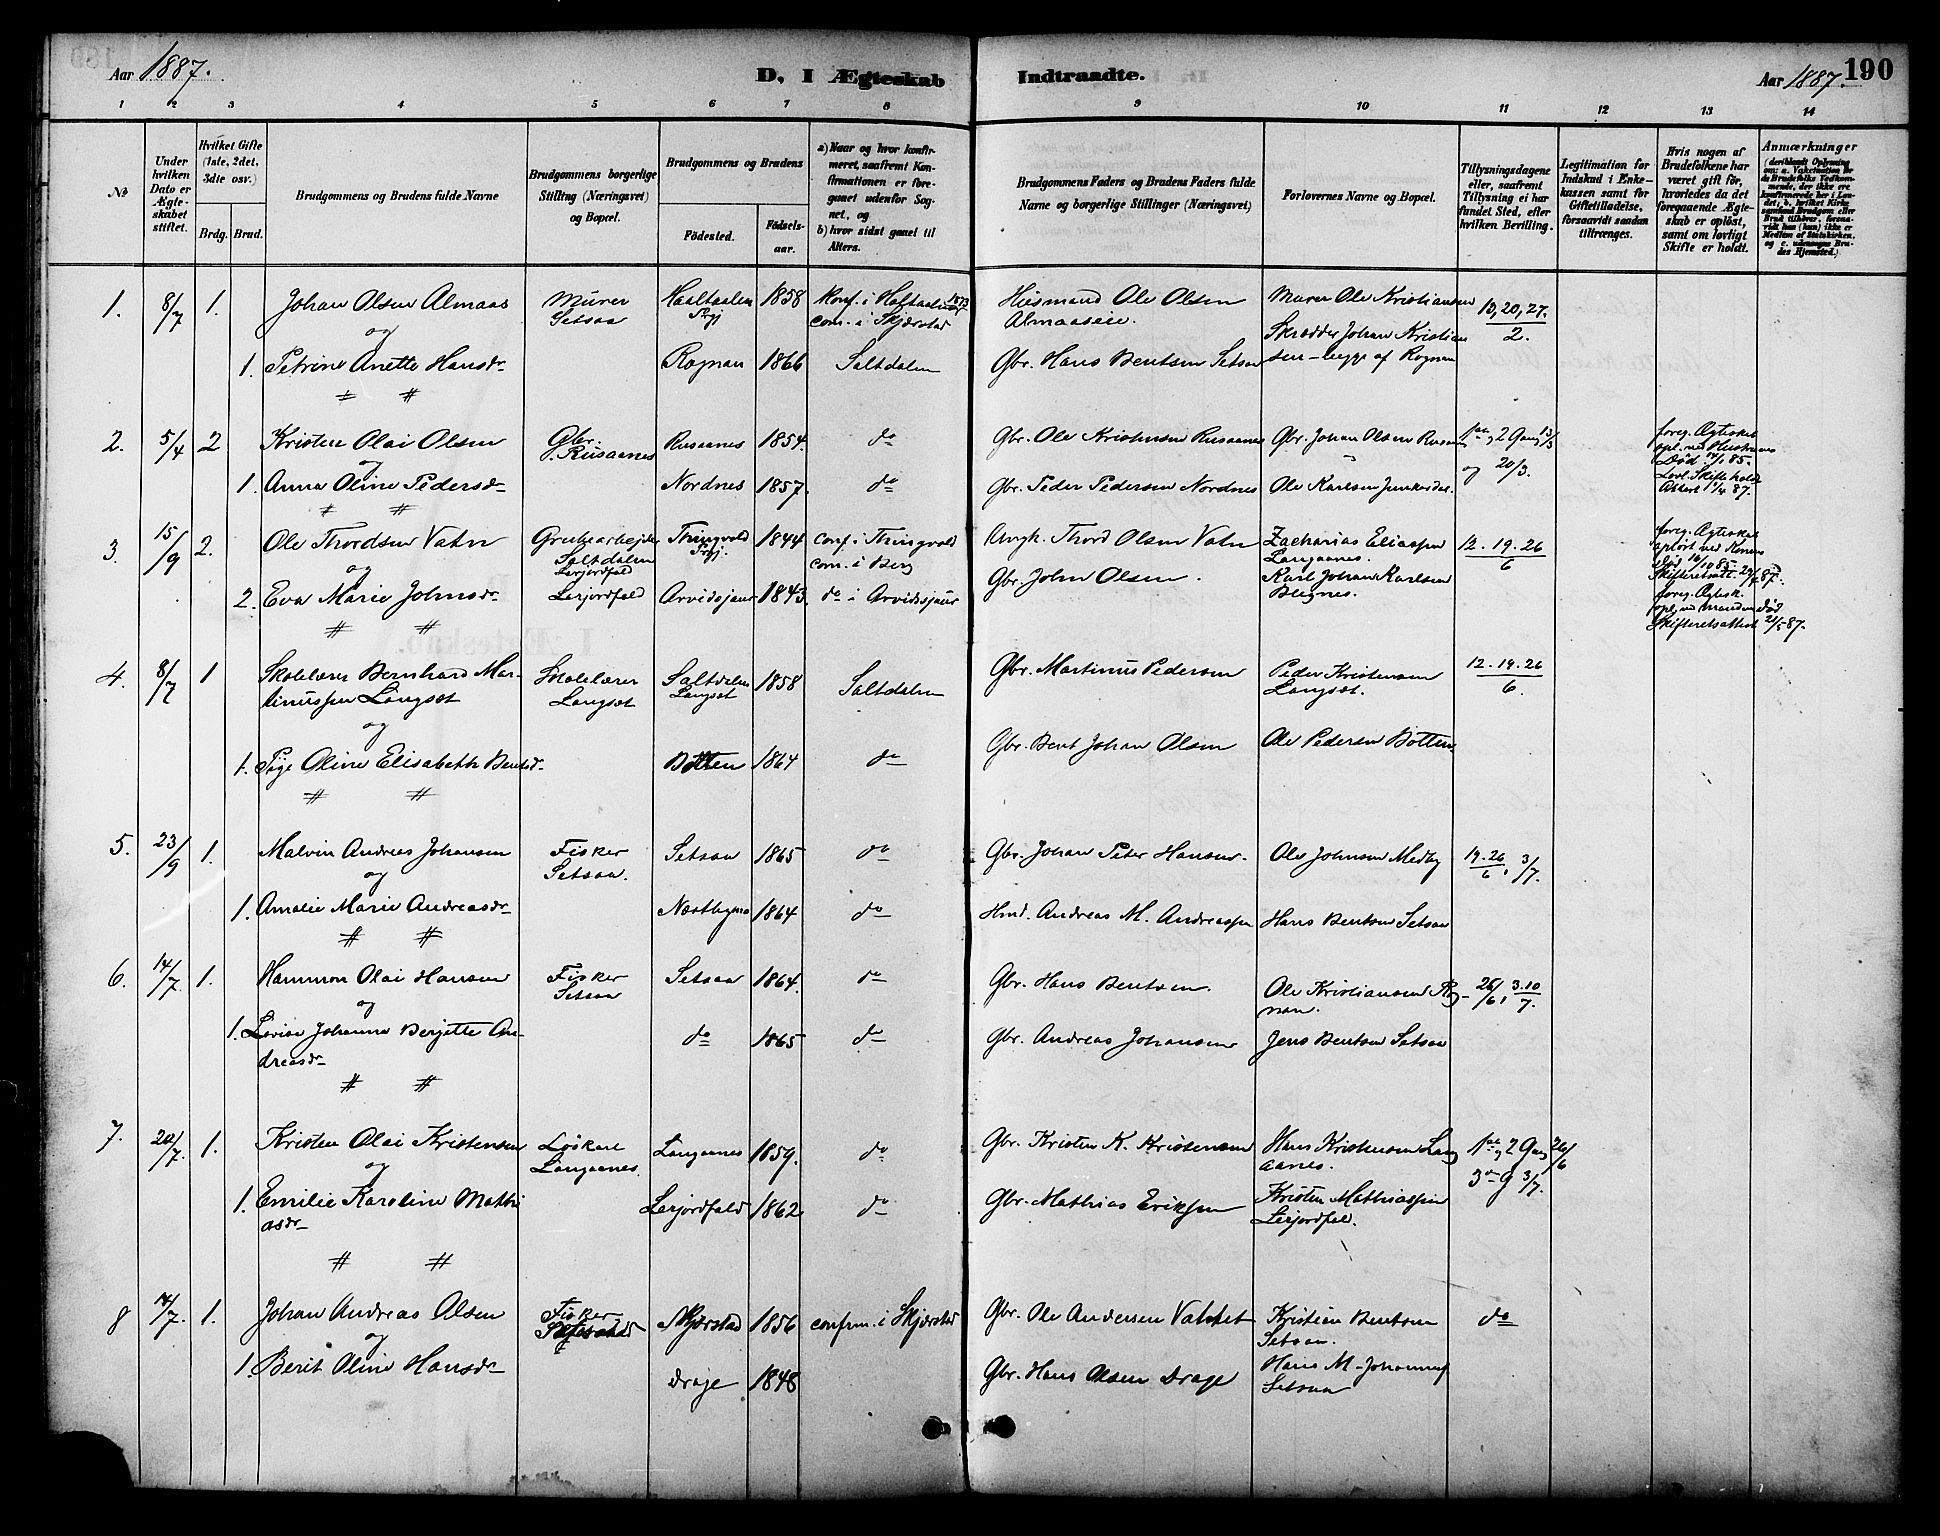 Aar 1887.
D, I Ægteskab Indtraadte.
Aar 1887.
190
1 2 3 4 5 6 7 8 9 10 11 12 13 14
№
Under hvilken Dato er Ægteskabet stiftet.
Hvilket Gifte (1ste, 2det, 3die osv.)
Brdg. Brud.
Brudgommens og Brudens fulde Navne
Brudgommens borgerlige Stilling (Næringsvei) og Bopæl.
Brudgommens og Brudens
Fødested.
Fødselsaar.
a) Naar og hvor konfirmeret, saafremt Konfirmationen er foregaaet udenfor Sognet, og
b) hvor sidst gaaet til Alters.
Brudgommens Faders og Brudens Faders fulde Navne og borgerlige Stillinger (Næringsvei)
Forlovernes Navne og Bopæl.
Tillysningsdagene eller, saafremt Tillysning ei har fundet Sted, efter hvilken Bevilling.
Legitimation for Indskud i Enkekassen samt for Giftetilladelse, forsaavidt saadan tiltrænges.
Hvis nogen af Brudefolkene har været gift før, hvorledes da det foregaaende Ægteskab er opløst, samt om lovligt Skifte er holdt.
Anmærkninger
1. 8/7 1. Johan Olsen Almaas Murer Setsaa Haaltaalen Prgj 1858 Konf. i Holtaalen 1873 com. i Skjærstad Husmand Ole Olsen Almaaseie. Murer Ole Kristiansen Skrædder Johan Kristiansen - begge af Rognan 13, 20, 27. 2.
og
1. Petrine Anette Hansdr Rognan 1866 Saltdalen Gbr. Hans Bentsen Setsaa
2. 5/4 2 Kristen Olai Olsen Gbr. Rusaanes Rusaanes 1854. do Gbr. Ole Kristensen Rusaanes Gbr. Johan Olsen Rusaanes 1ste og 2 Gang 13/3 og 20/3. foreg. Ægteskab opl. ved Hustruens Død 14/1 85. Lovl. Skifte holdt Attest 1/4 87.
og
1. Anna Oline Pedersdr Nordnes 1857. do Gbr. Peder Pedersen Nordnes Ole Karlsen Junkerdal.
3. 15/9 2. Ole Thordsen Vatn Grubearbejder Saltdalen Lerjordfald Thingvold Prgj. 1844 conf. i Thingvold com. i Berg Arngk. Thord Olsen Vatn Zacharias Eliassen Langaanes. 12. 19. 26 6 foreg. Ægteskab opløst ved Konens Død 10/10 85. Skifteretsatt. 29/7 87.
og
2. Eva Marie Johnsdr Lerjordfald Arvidsjaur 1843. do i Arvidsjaur Gbr. John Olsen. Karl Johan Karlsen Blegnes. foreg. Ægtesk. opl. ved Mandens Død Skifteretsattest 21/5 87.
4. 8/7 1 Skolelærer Bernhard Martinussen Langset Skolelærer Langset Saltdalen Langset 1858 Saltdalen Gbr. Martinus Pedersen Peder Kristensen Langset. 12. 19. 26 6.
og
1. Pige Oline Elisabeth Bentsdr Botten 1864 do Gbr. Bent Johan Olsen Ole Pedersen Botten
5. 23/9 1. Malvin Andreas Johansen Fisker Setsaa. Setsaa 1865 do Gbr. Johan Peter Hansen. Ole Johnsen Medby 19. 26 6, 3/7.
og
1. Amalie Marie Andreasdr Næstbyen 1864 do Hmd. Andreas M. Andreassen Hans Bentsen Setsaa
6. 14/7 1. Hammon Olai Hansen Fisker Setsaa Setsaa 1864. do Gbr. Hans Bentsen. Ole Kristiansen Rognan. 26/6, 3.10 7.
og
1. Lovise Johanna Berjette Andreasdr do 1865 do Gbr. Andreas Johansen Jens Bentsen Setsaa
7. 20/7. 1. Kristen Olai Kristensen Løskarl Langaanes Langaanes 1859. do Gbr. Kristen K. Kristensen Hans Kristensen Langaanes. 1ste og 2 Gang 26/6 3die G 3/7.
og
1. Emilie Karoline Mathiasdr Lerjordfald 1862 do Gbr. Mathias Eriksen Kristen Mathiassen Lerjordfal.
8 14/7. 1. Johan Andreas Olsen Fisker Skjærstad 1856 confirm. i Skjærstad Gbr. Ole Andersen Vatnet Kristian Bentsen Setsaa. do
og
1. Berit Oline Hansdr Drage 1848 Gbr. Hans Olsen Drage Hans M. Johannes Setsaa